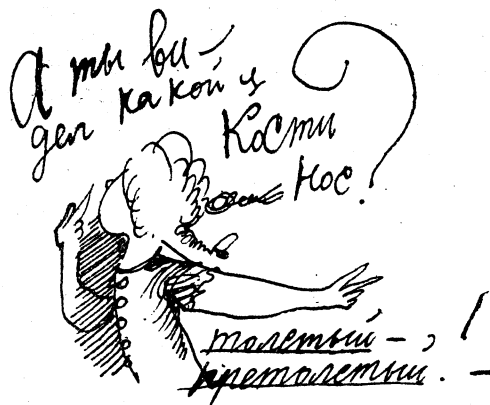 А ты ви-
дел какой у
Кости
нос?
толстый -, !
претолстый. -